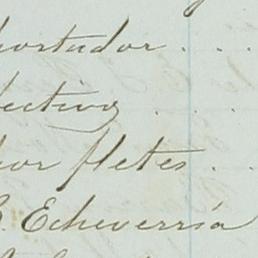 portador . . .
fectivo . . .
por fletes . .
G. Echeverría